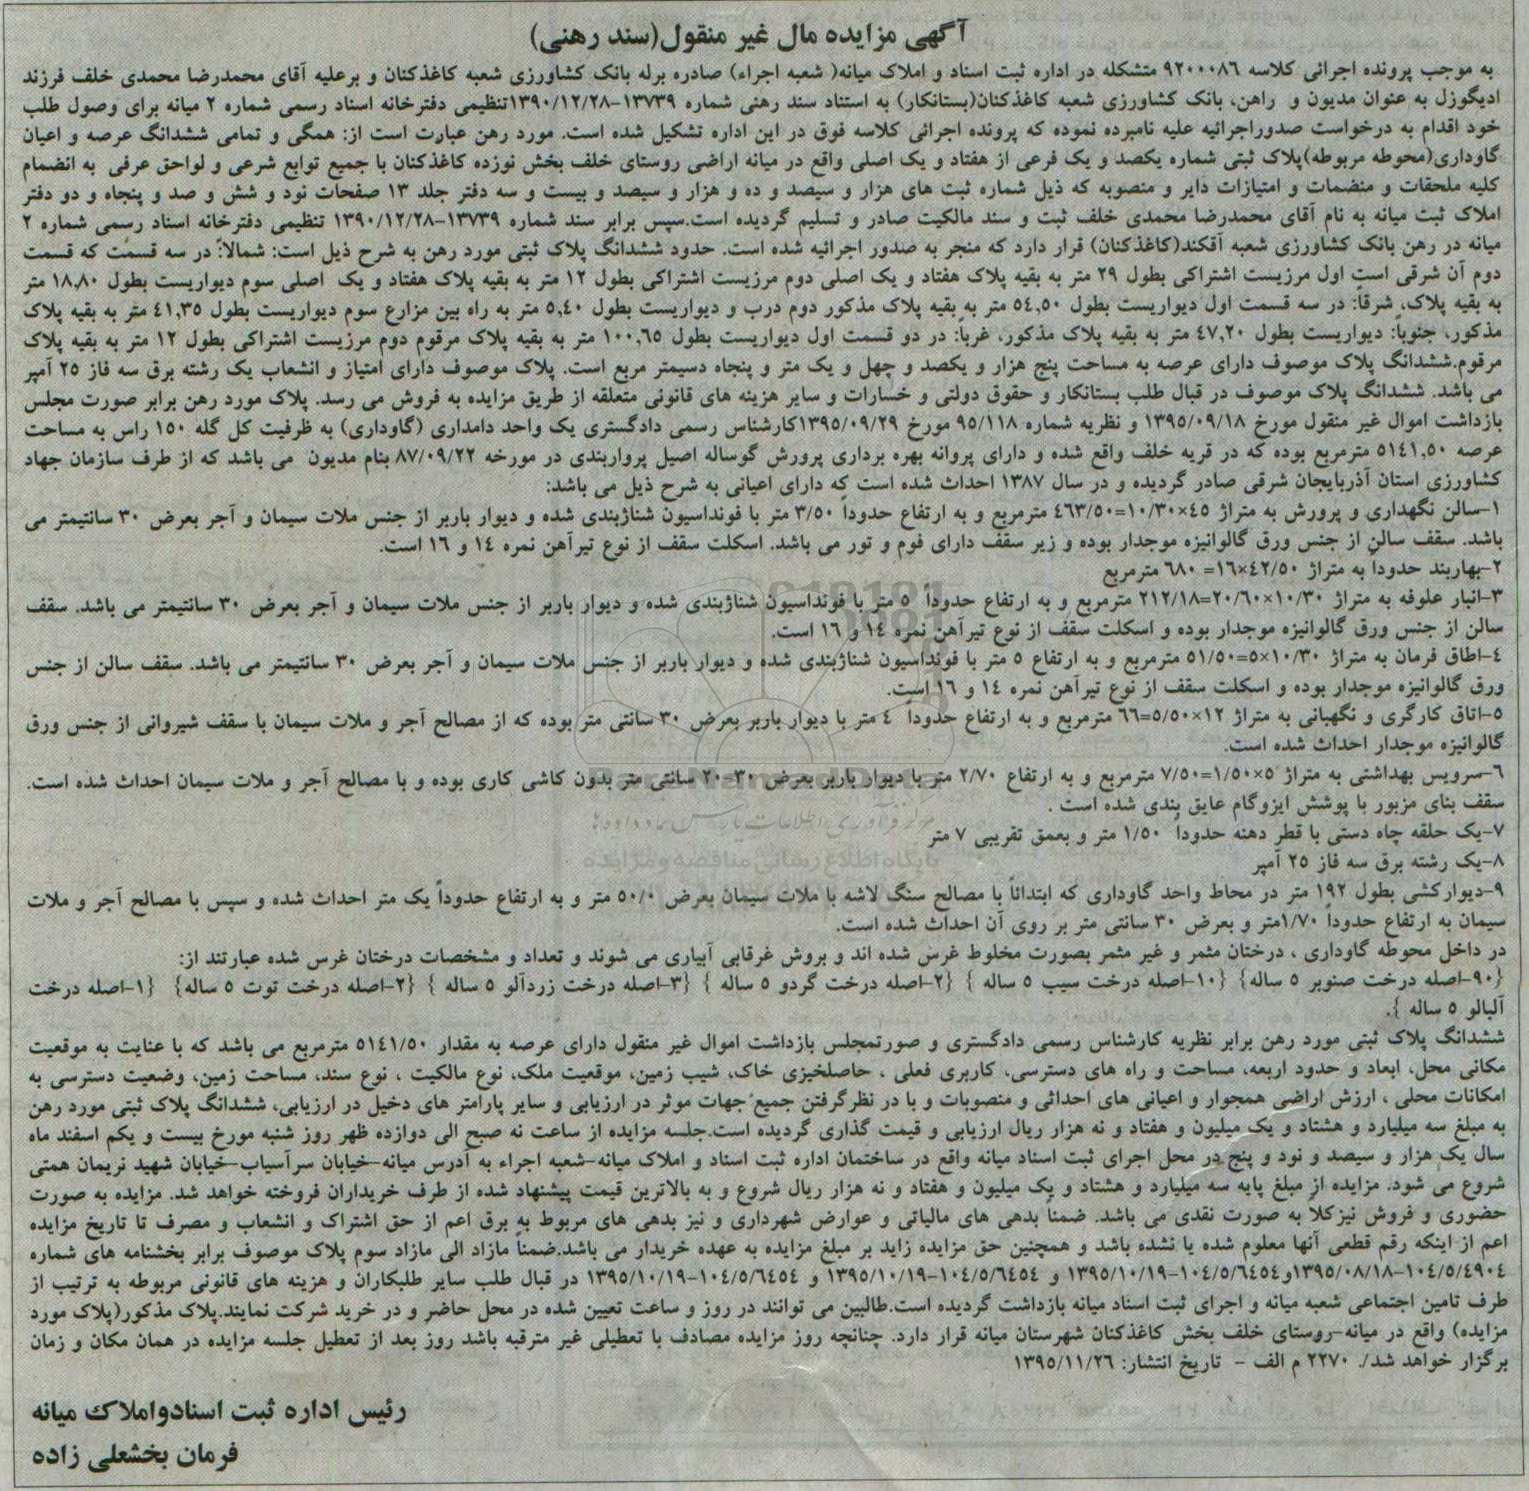 آگهی مزایده مال غیر منقول(سند رهنی)
به موجب پرونده اجرائی کلاسه ۹۲۰۰۰۸۶ متشکله در اداره ثبت اسناد و املاک میانه( شعبه اجراء) صادره برله بانک کشاورزی شعبه کاغذکنان و برعلیه آقای محمدرضا محمدی خلف فرزند
ادیگوزل به عنوان مدیون و راهن، بانک کشاورزی شعبه کاغذکنان(بستانکار) به استناد سند رهنی شماره ۱۳۷۳۹-۱۳۹۰/۱۲/۲۸تنظیمی دفترخانه اسناد رسمی شماره ۲ میانه برای وصول طلب
خود اقدام به درخواست صدوراجرائیه علیه نامبرده نموده که پرونده اجرائی کلاسه فوق در این اداره تشکیل شده است. مورد رهن عبارت است از: همگی و تمامی ششدانگ عرصه و اعیان
گاوداری(محوطه مربوطه)پلاک ثبتی شماره یکصد و یک فرعی از هفتاد و یک اصلی واقع در میانه اراضی روستای خلف بخش نوزده کاغذکنان با جمیع توابع شرعی و لواحق عرفی به انضمام
کلیه ملحقات و منضمات و امتیازات دایر و منصوبه که ذیل شماره ثبت های هزار و سیصد و ده و هزار و سیصد و بیست و سه دفتر جلد ۱۳ صفحات نود و شش و صد و پنجاه و دو دفتر
املاک ثبت میانه به نام آقای محمدرضا محمدی خلف ثبت و سند مالکیت صادر و تسلیم گردیده است.سپس برابر سند شماره ۱۳۷۳۹-۱۳۹۰/۱۲/۲۸ تنظیمی دفترخانه اسناد رسمی شماره ۲
میانه در رهن بانک کشاورزی شعبه آقکند(کاغذکنان) قرار دارد که منجر به صدور اجرائیه شده است. حدود ششدانگ پلاک ثبتی مورد رهن به شرح ذیل است: شمالاً: در سه قسمت که قسمت
دوم آن شرقی است اول مرزیست اشتراکی بطول ۲۹ متر به بقیه پلاک هفتاد و یک اصلی دوم مرزیست اشتراکی بطول ۱۲ متر به بقیه پلاک هفتاد و یک اصلی سوم دیواریست بطول ۱۸,۸۰ متر
به بقیه پلاک، شرقاً: در سه قسمت اول دیواریست بطول ۵۴,۵۰ متر به بقیه پلاک مذکور دوم درب و دیواریست بطول ۵,۴۰ متر به راه بین مزارع سوم دیواریست بطول ۴۱,۳۵ متر به بقیه پلاک
مذکور، جنوباً: دیواریست بطول ۴۷,۲۰ متر به بقیه پلاک مذکور، غرباً: در دو قسمت اول دیواریست بطول ۱۰۰,۶۵ متر به بقیه پلاک مرقوم دوم مرزیست اشتراکی بطول ۱۲ متر به بقیه پلاک
مرقوم.ششدانگ پلاک موصوف دارای عرصه به مساحت پنج هزار و یکصد و چهل و یک متر و پنجاه دسیمتر مربع است. پلاک موصوف دارای امتیاز و انشعاب یک رشته برق سه فاز ۲۵ آمپر
می باشد. ششدانگ پلاک موصوف در قبال طلب بستانکار و حقوق دولتی و خسارات و سایر هزینه های قانونی متعلقه از طریق مزایده به فروش می رسد. پلاک مورد رهن برابر صورت مجلس
بازداشت اموال غیر منقول مورخ ۱۳۹۵/۰۹/۱۸ و نظریه شماره ۹۵/۱۱۸ مورخ ۱۳۹۵/۰۹/۲۹کارشناس رسمی دادگستری یک واحد دامداری (گاوداری) به ظرفیت کل گله ۱۵۰ راس به مساحت
عرصه ۵۱۴۱,۵۰ مترمربع بوده که در قریه خلف واقع شده و دارای پروانه بهره برداری پرورش گوساله اصیل پرواربندی در مورخه ۸۷/۰۹/۲۲ بنام مدیون می باشد که از طرف سازمان جهاد
کشاورزی استان آذربایجان شرقی صادر گردیده و در سال ۱۳۸۷ احداث شده است که دارای اعیانی به شرح ذیل می باشد:
۱-سالن نگهداری و پرورش به متراژ ۴۵×۱۰/۳۰=۴۶۳/۵۰ مترمربع و به ارتفاع حدوداً ۳/۵۰ متر با فونداسیون شناژبندی شده و دیوار باربر از جنس ملات سیمان و آجر بعرض ۳۰ سانتیمتر می
باشد. سقف سالن از جنس ورق گالوانیزه موجدار بوده و زیر سقف دارای فوم و تور می باشد. اسکلت سقف از نوع تیرآهن نمره ۱۴ و ۱۶ است.
۲-بهاربند حدوداً به متراژ ۴۲/۵۰×۱۶= ۶۸۰ مترمربع
۳-انبار علوفه به متراژ ۱۰/۳۰×۲۰/۶۰=۲۱۲/۱۸ مترمربع و به ارتفاع حدوداً ۵ متر با فونداسیون شناژبندی شده و دیوار باربر از جنس ملات سیمان و آجر بعرض ۳۰ سانتیمتر می باشد. سقف
سالن از جنس ورق گالوانیزه موجدار بوده و اسکلت سقف از نوع تیرآهن نمره ۱۴ و ۱۶ است.
۴-اطاق فرمان به متراژ ۱۰/۳۰×۵=۵۱/۵۰ مترمربع و به ارتفاع ۵ متر با فونداسیون شناژبندی شده و دیوار باربر از جنس ملات سیمان و آجر بعرض ۳۰ سانتیمتر می باشد. سقف سالن از جنس
ورق گالوانیزه موجدار بوده و اسکلت سقف از نوع تیرآهن نمره ۱۴ و ۱۶ است.
۵-اتاق کارگری و نگهبانی به متراژ ۱۲×۵/۵۰=۶۶ مترمربع و به ارتفاع حدوداً ۴ متر با دیوار باربر بعرض ۳۰ سانتی متر بوده که از مصالح آجر و ملات سیمان با سقف شیروانی از جنس ورق
گالوانیزه موجدار احداث شده است.
۶-سرویس بهداشتی به متراژ ۵×۱/۵۰=۷/۵۰ مترمربع و به ارتفاع ۲/۷۰ متر با دیوار باربر بعرض ۳۰-۲۰ سانتی متر بدون کاشی کاری بوده و با مصالح آجر و ملات سیمان احداث شده است.
سقف بنای مزبور با پوشش ایزوگام عایق بندی شده است .
۷-یک حلقه چاه دستی با قطر دهنه حدوداً ۱/۵۰ متر و بعمق تقریبی ۷ متر
۸-یک رشته برق سه فاز ۲۵ آمپر
۹-دیوارکشی بطول ۱۹۲ متر در محاط واحد گاوداری که ابتدائاً با مصالح سنگ لاشه با ملات سیمان بعرض ۵۰/۰ متر و به ارتفاع حدوداً یک متر احداث شده و سپس با مصالح آجر و ملات
سیمان به ارتفاع حدوداً ۱/۷۰متر و بعرض ۳۰ سانتی متر بر روی آن احداث شده است.
در داخل محوطه گاوداری ، درختان مثمر و غیر مثمر بصورت مخلوط غرس شده اند و بروش غرقابی آبیاری می شوند و تعداد و مشخصات درختان غرس شده عبارتند از:
{۹۰-اصله درخت صنوبر ۵ ساله} {۱۰-اصله درخت سیب ۵ ساله } {۲-اصله درخت گردو ۵ ساله } {۳-اصله درخت زردآلو ۵ ساله } {۲-اصله درخت توت ۵ ساله} {۱-اصله درخت
آلبالو ۵ ساله }.
ششدانگ پلاک ثبتی مورد رهن برابر نظریه کارشناس رسمی دادگستری و صورتمجلس بازداشت اموال غیر منقول دارای عرصه به مقدار ۵۱۴۱/۵۰ مترمربع می باشد که با عنایت به موقعیت
مکانی محل، ابعاد و حدود اربعه، مساحت و راه های دسترسی، کاربری فعلی ، حاصلخیزی خاک، شیب زمین، موقعیت ملک، نوع مالکیت ، نوع سند، مساحت زمین، وضعیت دسترسی به
امکانات محلی ، ارزش اراضی همجوار و اعیانی های احداثی و منصوبات و با در نظرگرفتن جمیع جهات موثر در ارزیابی و سایر پارامتر های دخیل در ارزیابی، ششدانگ پلاک ثبتی مورد رهن
به مبلغ سه میلیارد و هشتاد و یک میلیون و هفتاد و نه هزار ریال ارزیابی و قیمت گذاری گردیده است.جلسه مزایده از ساعت نه صبح الی دوازده ظهر روز شنبه مورخ بیست و یکم اسفند ماه
سال یک هزار و سیصد و نود و پنج در محل اجرای ثبت اسناد میانه واقع در ساختمان اداره ثبت اسناد و املاک میانه-شعبه اجراء به آدرس میانه-خیابان سرآسیاب-خیابان شهید نریمان همتی
شروع می شود. مزایده از مبلغ پایه سه میلیارد و هشتاد و یک میلیون و هفتاد و نه هزار ریال شروع و به بالاترین قیمت پیشنهاد شده از طرف خریداران فروخته خواهد شد. مزایده به صورت
حضوری و فروش نیزکلاً به صورت نقدی می باشد. ضمناً بدهی های مالیاتی و عوارض شهرداری و نیز بدهی های مربوط به برق اعم از حق اشتراک و انشعاب و مصرف تا تاریخ مزایده
اعم از اینکه رقم قطعی آنها معلوم شده یا نشده باشد و همچنین حق مزایده زاید بر مبلغ مزایده به عهده خریدار می باشد.ضمناً مازاد الی مازاد سوم پلاک موصوف برابر بخشنامه های شماره
۱۰۴/۵/۴۹۰۴-۱۳۹۵/۰۸/۱۸و۱۰۴/۵/۶۴۵۴-۱۳۹۵/۱۰/۱۹ و ۱۰۴/۵/۶۴۵۴-۱۳۹۵/۱۰/۱۹ و ۱۰۴/۵/۶۴۵۴-۱۳۹۵/۱۰/۱۹ در قبال طلب سایر طلبکاران و هزینه های قانونی مربوطه به ترتیب از
طرف تامین اجتماعی شعبه میانه و اجرای ثبت اسناد میانه بازداشت گردیده است.طالبین می توانند در روز و ساعت تعیین شده در محل حاضر و در خرید شرکت نمایند.پلاک مذکور(پلاک مورد
مزایده) واقع در میانه-روستای خلف بخش کاغذکنان شهرستان میانه قرار دارد. چنانچه روز مزایده مصادف با تعطیلی غیر مترقبه باشد روز بعد از تعطیل جلسه مزایده در همان مکان و زمان
برگزار خواهد شد/. ۲۲۷۰ م الف - تاریخ انتشار: ۱۳۹۵/۱۱/۲۶
رئیس اداره ثبت اسنادواملاک میانه
فرمان بخشعلی زاده